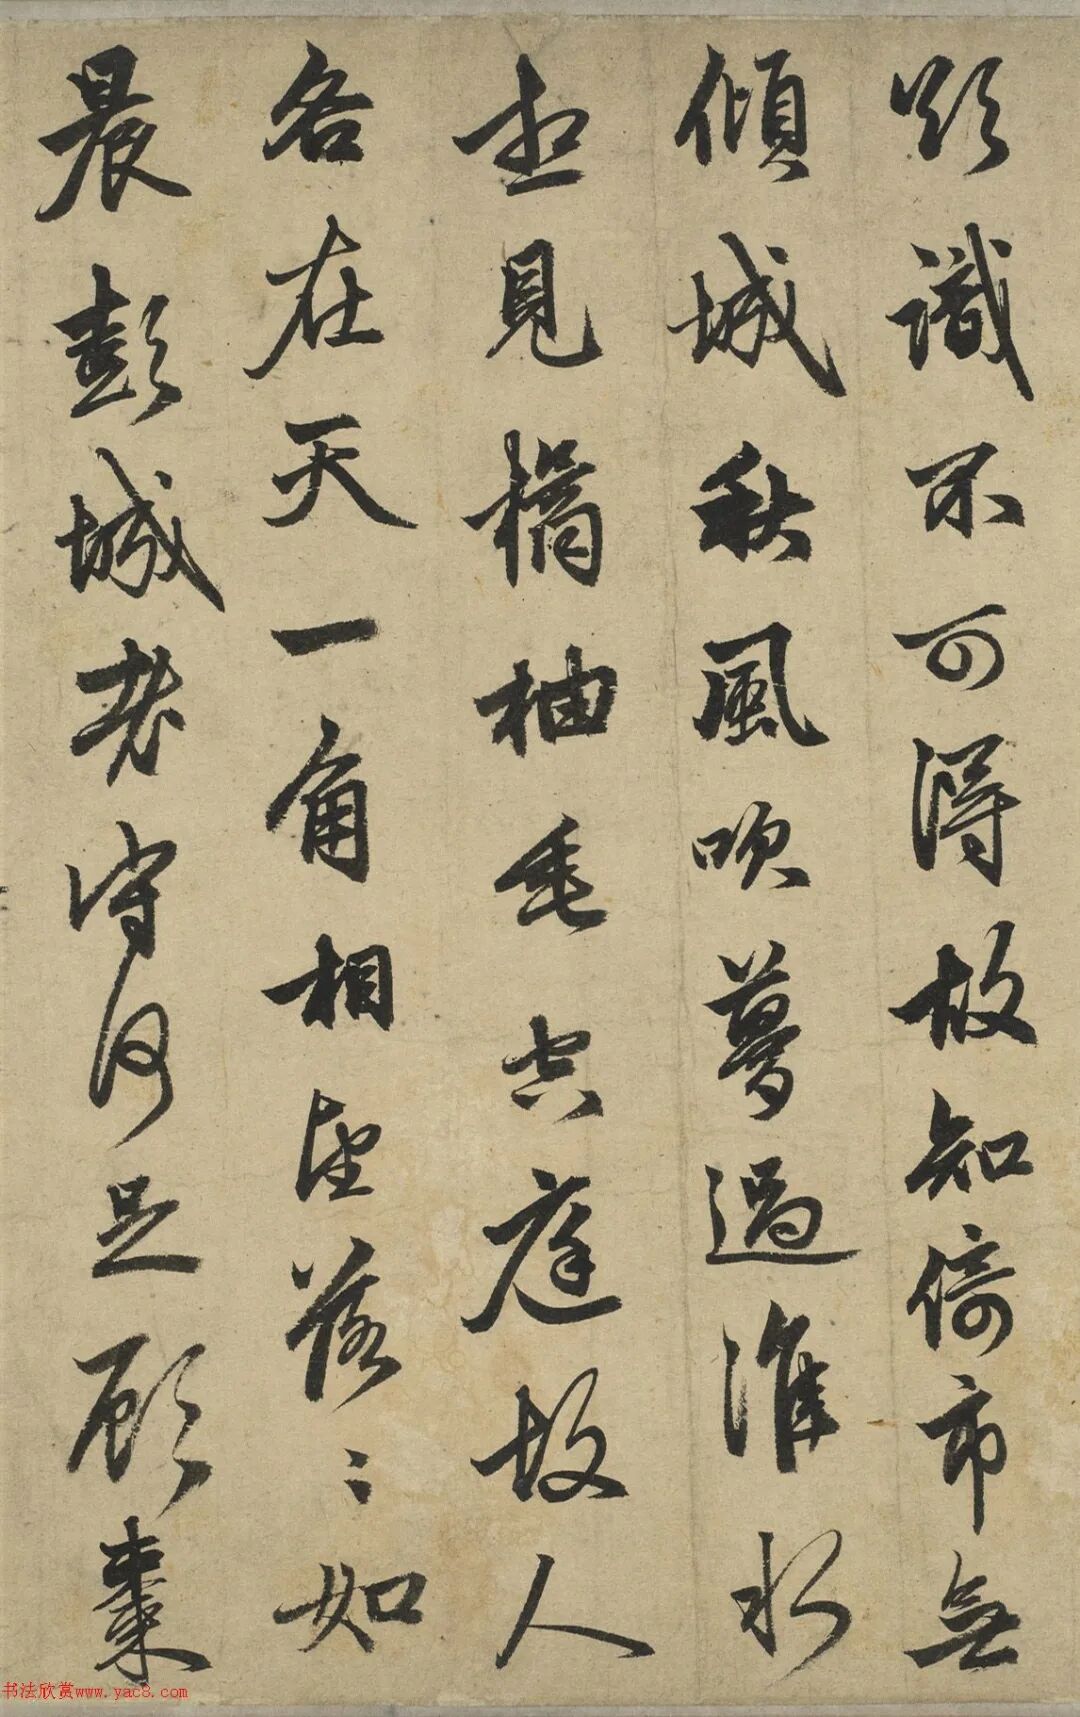 欲識不可得故知倚市無
傾城秋風吹夢過淮水
想見橘柚垂空庭故人
各在天一角相望落〻如
晨彭城老守何足顧棗
书法欣赏www.yac8.com